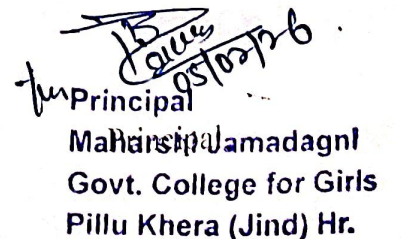 05/02/26
for Principal
Principal
Maharshi Jamadagni
Govt. College for Girls
Pillu Khera (Jind) Hr.